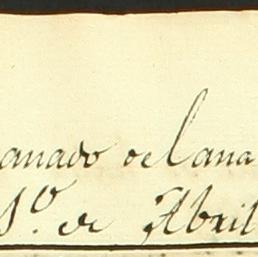 anado de lana
1º. de Abril